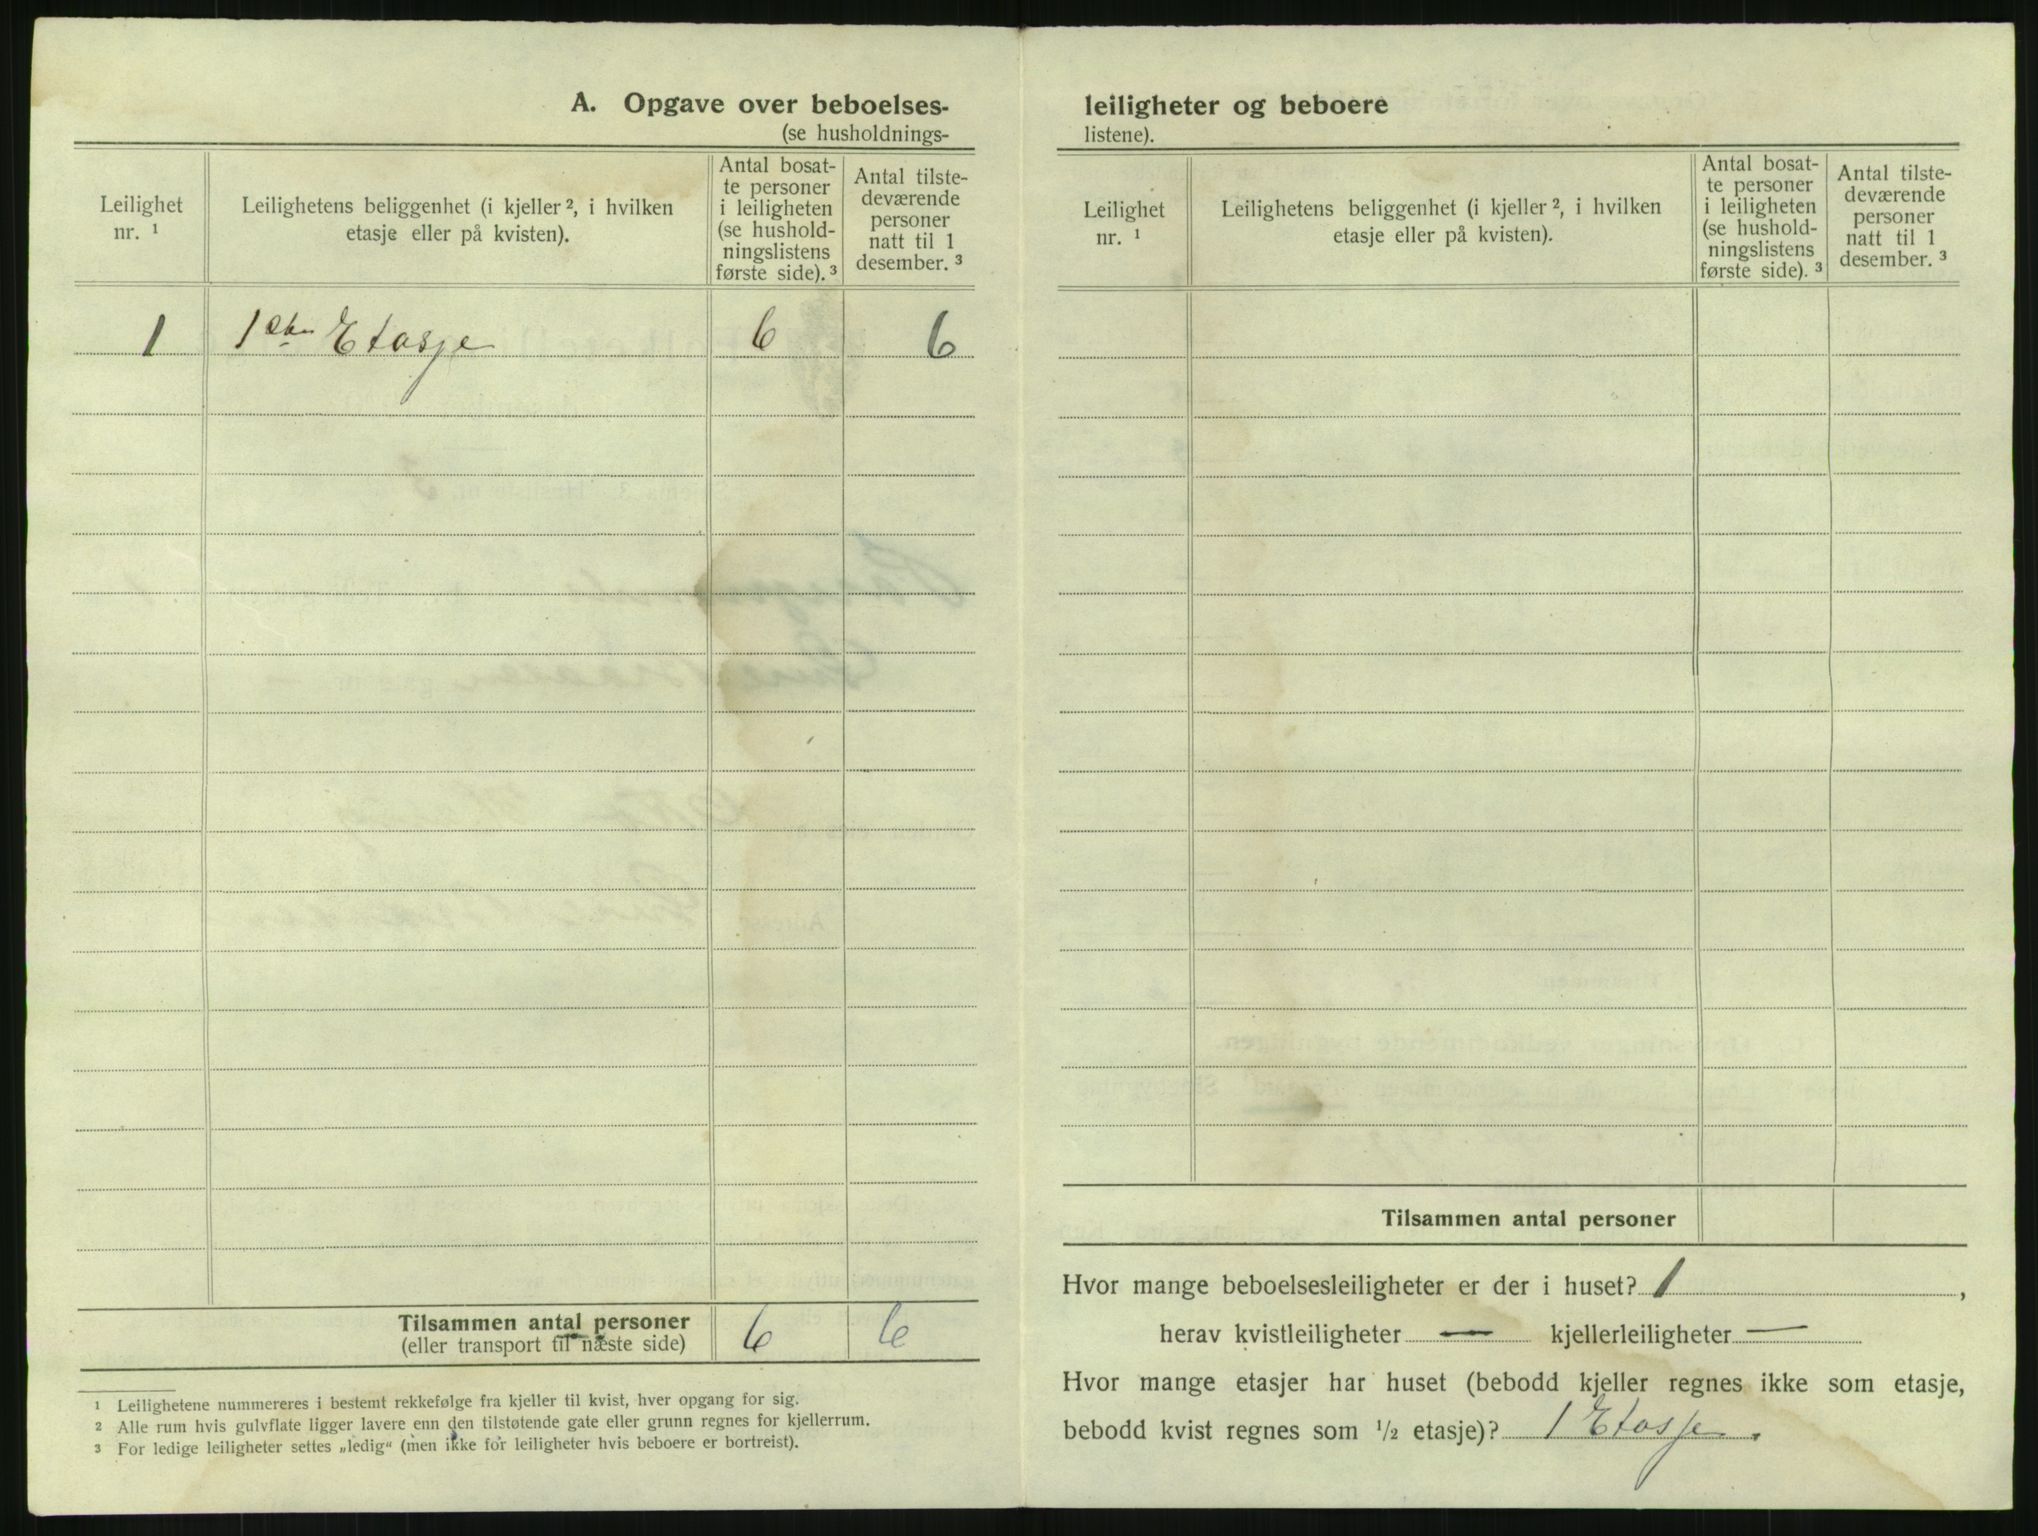 A. Opgave over beboelses-
(se husholdnings-
Leilighet
nr. ¹
Leilighetens beliggenhet (i kjeller ², i hvilken
etasje eller på kvisten).
Antal bosat-
te personer
i leiligheten
(se hushold-
ningslistens
første side). ³
Antal tilste-
deværende
personer
natt til 1
desember. ³
1 1ste Etasje 6 6
Tilsammen antal personer 6 6
(eller transport til næste side)
¹ Leilighetene nummereres i bestemt rekkefølge fra kjeller til kvist, hver opgang for sig.
² Alle rum hvis gulvflate ligger lavere enn den tilstøtende gate eller grunn regnes for kjellerrum.
³ For ledige leiligheter settes „ledig“ (men ikke for leiligheter hvis beboere er bortreist).
leiligheter og beboere
listene).
Leilighet
nr. ¹
Leilighetens beliggenhet (i kjeller ², i hvilken
etasje eller på kvisten).
Antal bosat-
te personer
i leiligheten
(se hushold-
ningslistens
første side). ³
Antal tilste-
deværende
personer
natt til 1
desember. ³
Tilsammen antal personer
Hvor mange beboelsesleiligheter er der i huset? 1,
herav kvistleiligheter — kjellerleiligheter —
Hvor mange etasjer har huset (bebodd kjeller regnes ikke som etasje,
bebodd kvist regnes som ½ etasje)? 1 Etasje.